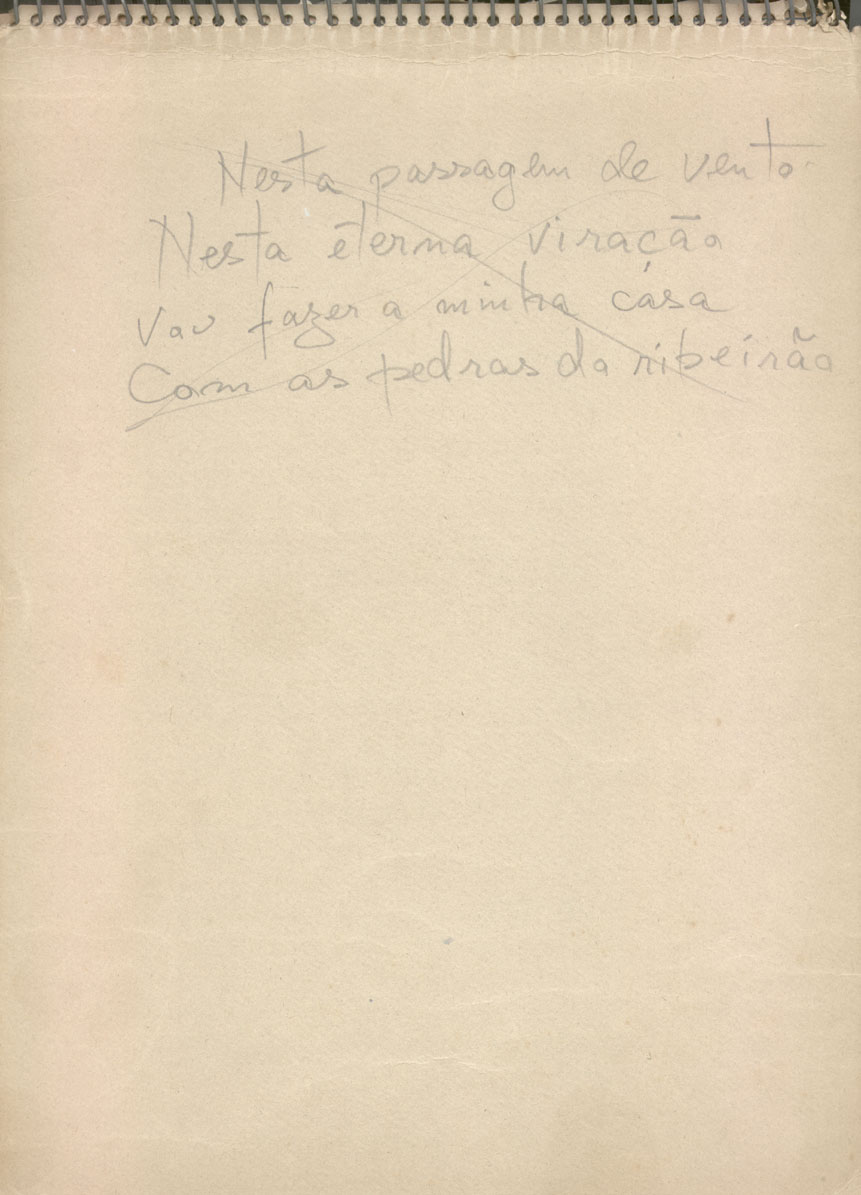 Nesta passagem de vento
Nesta eterna viração
Vou fazer a minha casa
Com as pedras do ribeirão